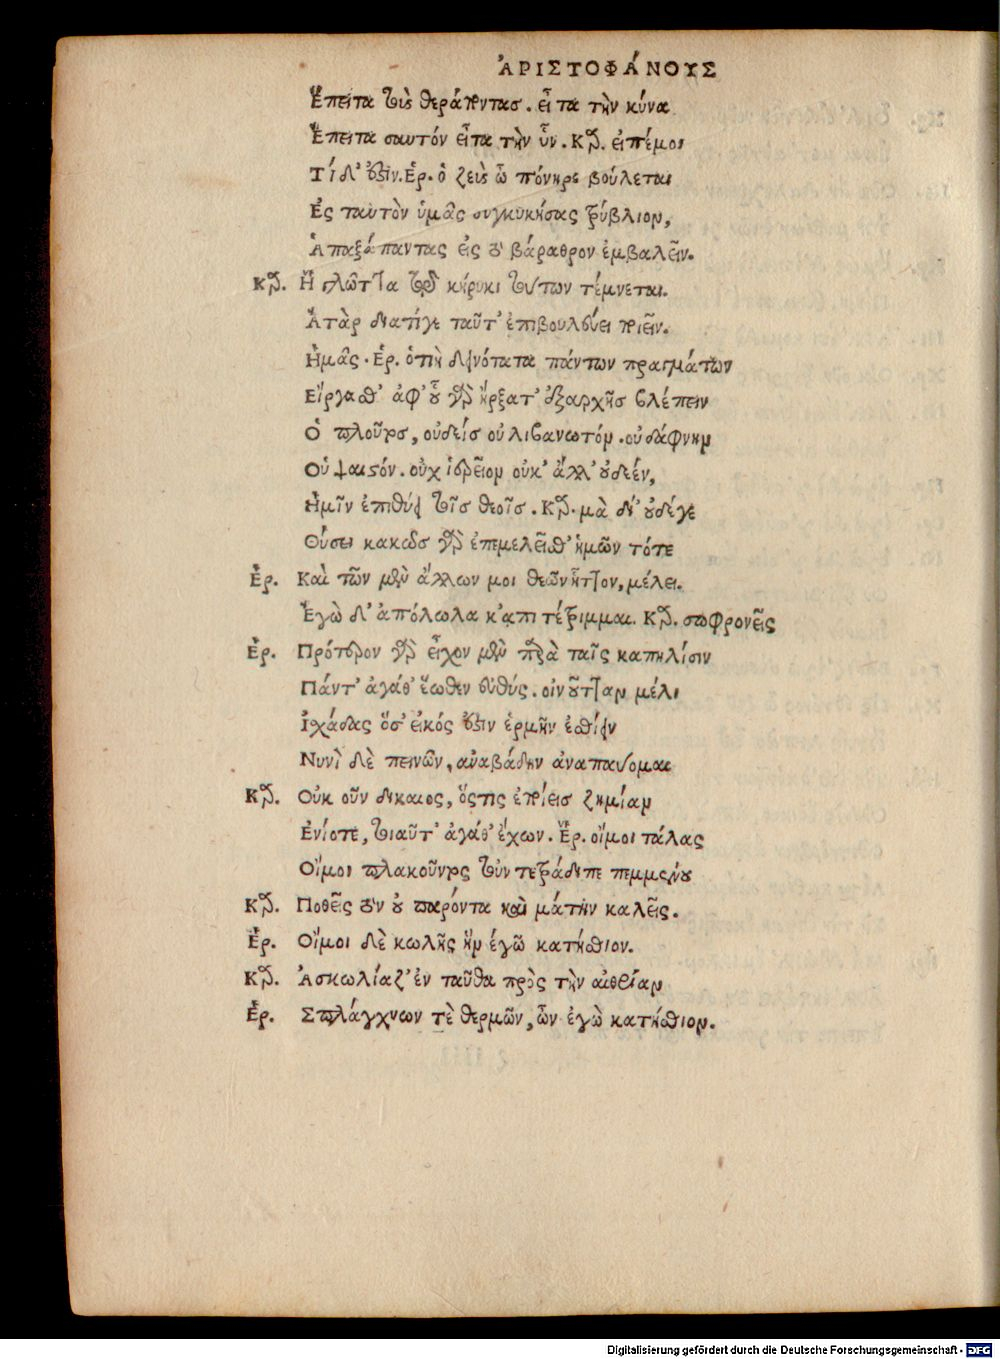 ἈΡΙΣΤΟΦΆΝΟΥΣ
Ἔπειτα τοὺς θεράποντασ. εἶτα τὴν κύνα
Ἔπειτα σαυτόν εἶτα τὴν ὗν. Καρ. εἰπέμοι
Τί δ' ἐστιν. Ἑρ. ὁ ζεὺς ὦ πόνηρε βούλεται
Ἐς ταυτὸν ὑμᾶς συγκυκήσας τρύβλιον,
Ἁπαξάπαντας εἰς τὸ βάραθρον ἐμβαλεῖν.
Καρ. Ἡ γλῶττα τῷ κήρυκι τούτων τέμνεται.
Ἀτὰρ διατίγε ταῦτ' ἐπιβουλεύει ποιεῖν.
Ἡμᾶς. Ἑρ. ὁτιὴ δεινότατα πάντων πραγμάτων
Εἴργασθ' ἀφ' οὗ γὰρ ἤρξατ' ἐξαρχῆσ βλέπειν
Ὁ πλοῦτος, οὐδείσ οὐ λιβανωτόν. οὐ δάφνην
Οὐ ψαιστόν. οὐχ ἱερεῖον οὐκ' ἄλλ' οὐδεέν,
Ἡμῖν ἐπιθύει τοῖσ θεοῖσ. Καρ. μὰ δί' οὐδέγε
Θύσει κακῶσ γὰρ ἐπεμελεῖσθ' ἡμῶν τότε
Ἑρ. Καὶ τῶν μὲν ἄλλων μοι θεῶν ἧττον, μέλει.
Ἐγὼ δ' ἀπόλωλα κ'ἀπιτέτριμμαι. Καρ. σωφρονεῖς
Ἑρ. Πρότερον γὰρ εἶχον μὲν παρὰ ταῖς καπηλίσιν
Πάντ' ἀγάθ' ἕωθεν εὐθύς. οἰνοῦτταν μέλι
Ἰχάδας ὅσ' εἰκός ἐστιν ἑρμῆν ἐσθίειν
Νυνὶ δὲ πεινῶν, ἀναβάδην ἀναπαύομαι
Καρ. Οὐκ οῦν δικαιος, ὅστις ἐποίεισ ζημίαν
Ἐνίοτε, τοιαῦτ' ἀγάθ' ἔχων. Ἑρ. οἴμοι τάλας
Οἴμοι πλακοῦντος τοῦν τετράδιπε πεμμένου
Καρ. Ποθεῖς τὸν οὐ παρόντα καὶ μάτην καλεῖς.
Ἑρ. Οἴμοι δὲ κωλῆς ἣν ἐγῶ κατήσθιον.
Καρ. Ἀσκωλίαζ' ἐν ταῦθα πρὸς τὴν αἰθρίαν
Ἑρ. Σπλάγχνων τὲ θερμῶν, ὧν ἐγὼ κατήσθιον.
Digitalisierung gefördert durch die Deutsche Forschungsgemeinschaft - DFG